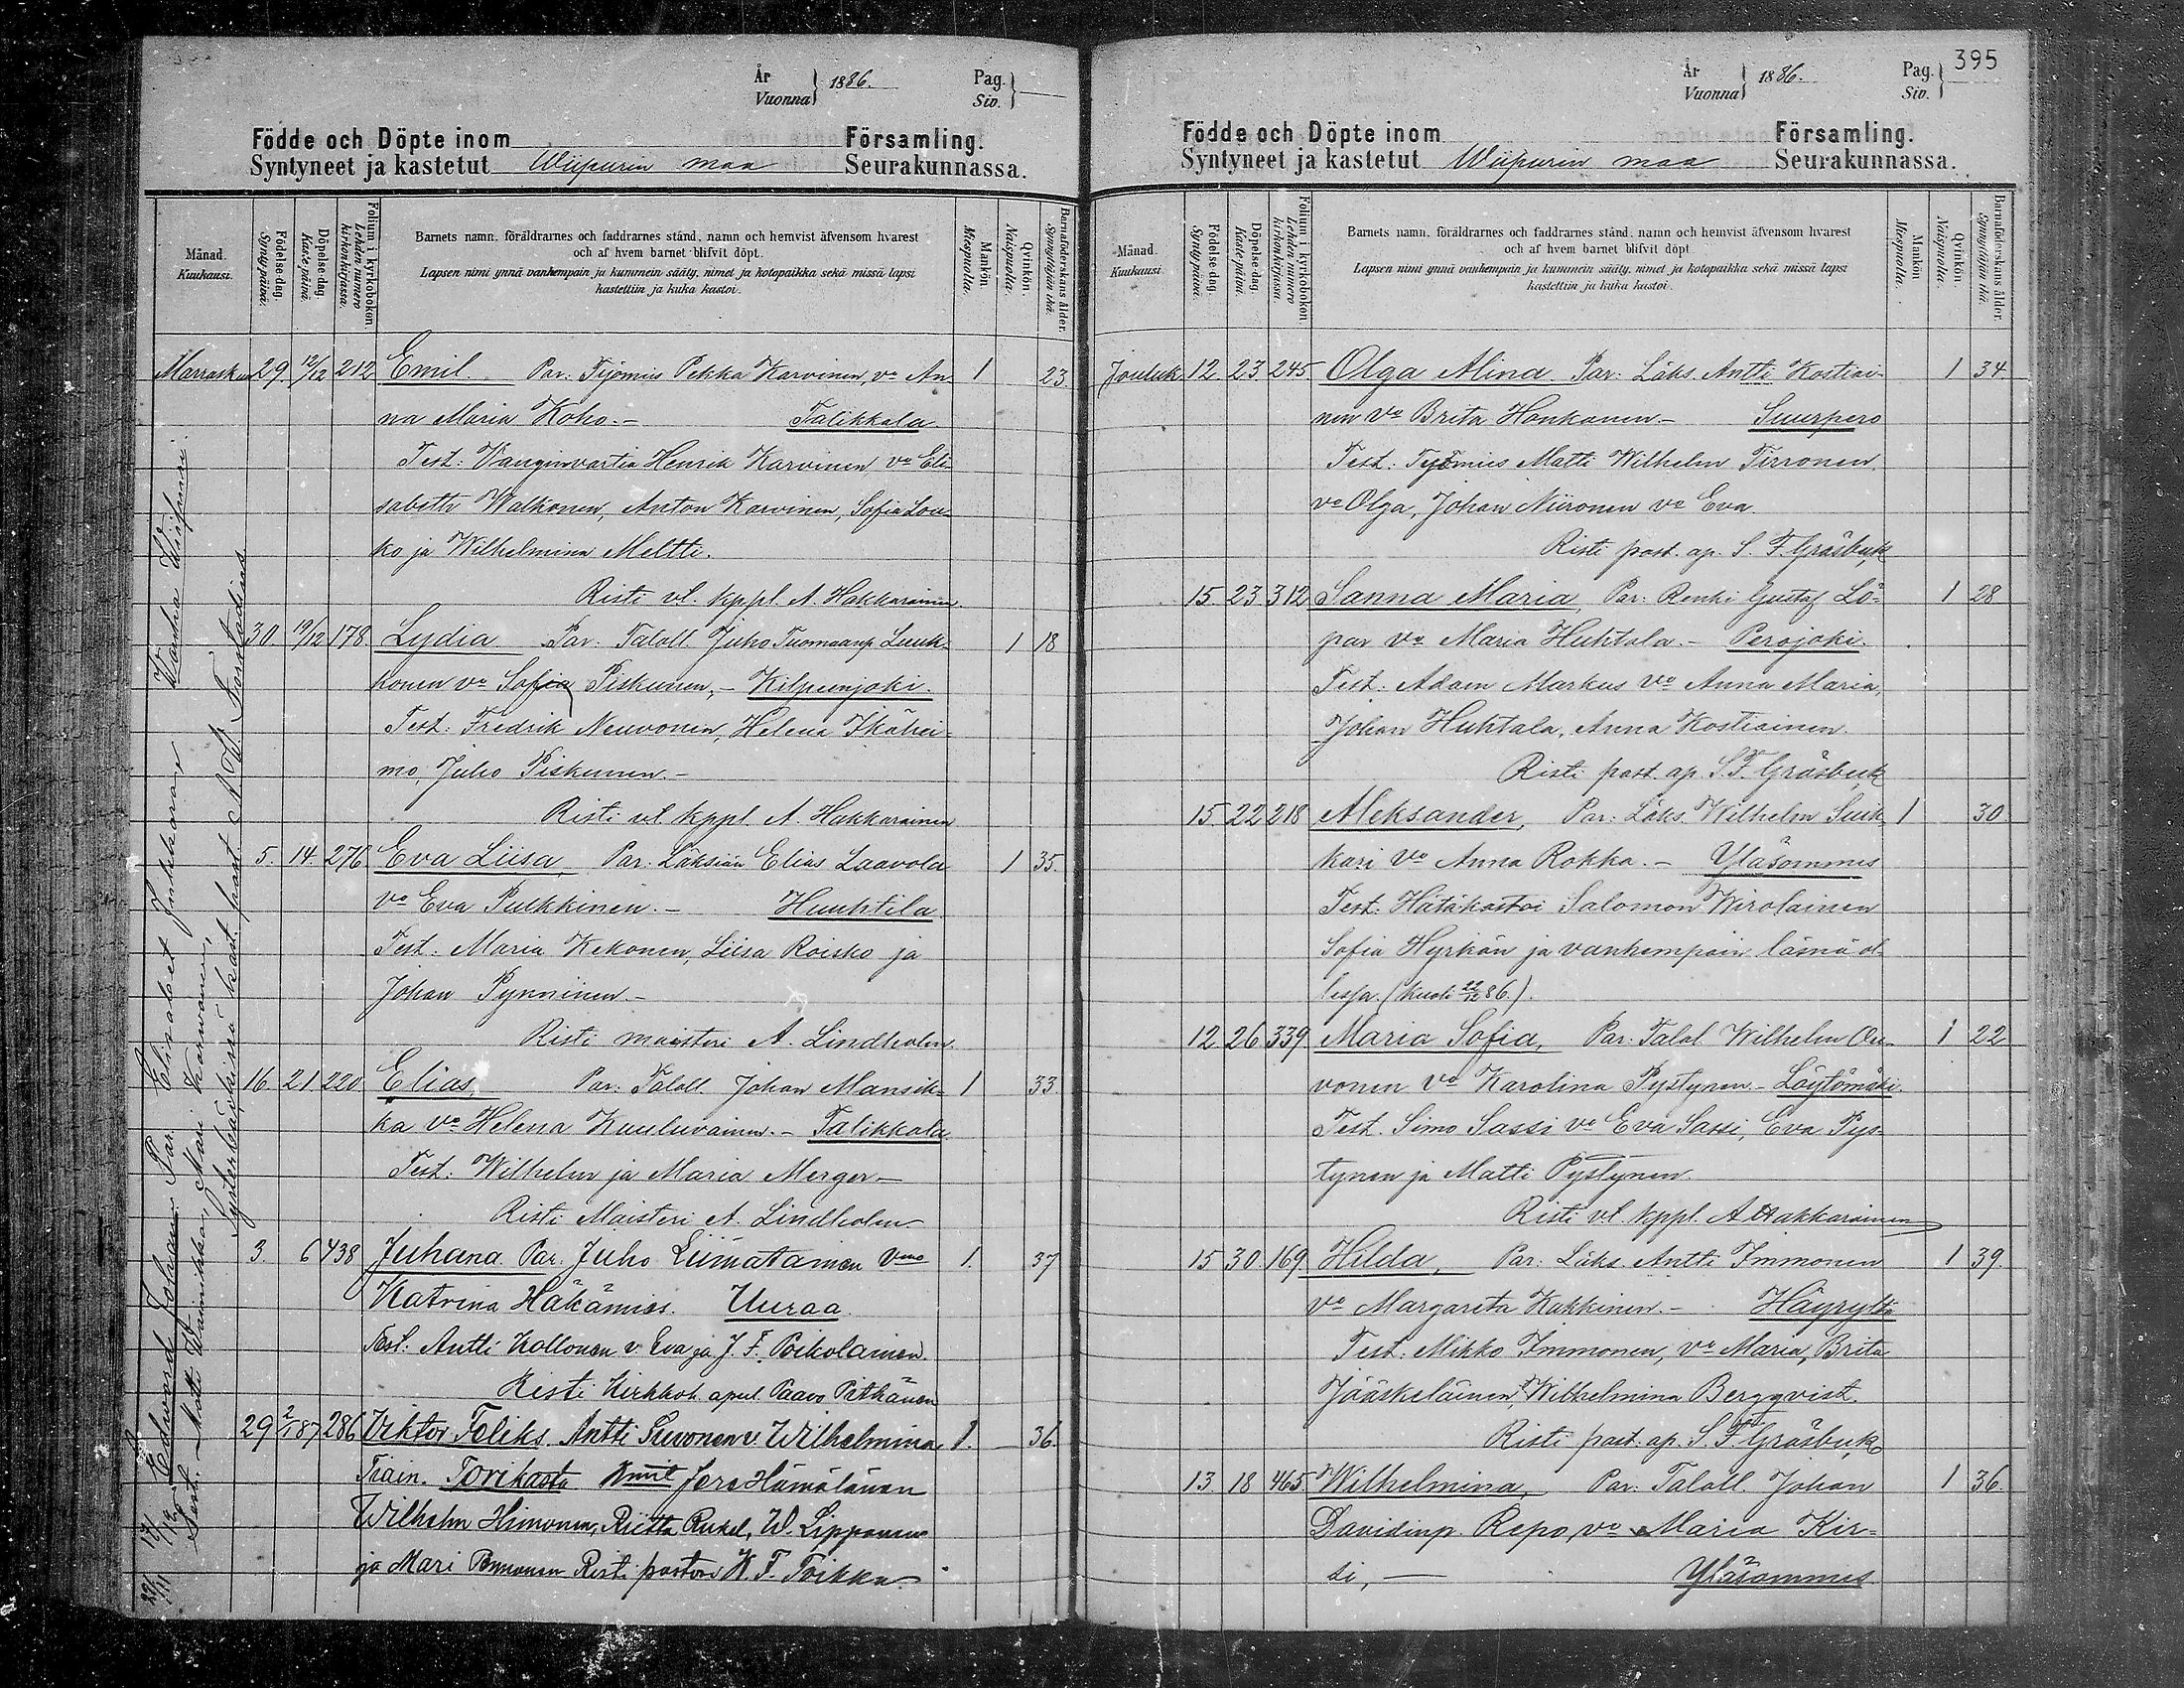 År
Vuonna } 1886.
Pag.
Siv. }
Födde och Döpte inom Församling.
Syntyneet ja kastetut Wiipurin maa Seurakunnassa.
Månad.
Kuukausi.
Födelse-dag.
Syntympäivä.
Döpelse-dag.
Kaste-päivä.
Folium i kyrkoboken.
Lehden numero kirkonkirjassa.
Barnets namn, föräldrarnes och faddrarnes stånd, namn och hemvist äfvensom hvarest
och af hvem barnet blifvit döpt.
Lapsen nimi ynnä vanhempain ja kummein sääty, nimet ja kotopaikka sekä missä lapsi
kastettiin ja kuka kastoi.
Mankön.
Miespuolia.
Qvinkön.
Naispuolia.
Barnaföderskans ålder.
Synnyttäjän ikä.
Marrask. 29. 12/12 212 Emil. Par: Työmies Pekka Karvinen, vo An- 1 23.
na Maria Koho.- Talikkala.
Test: Vanginvartia Henrik Karvinen vo Eli-
sabeth Walkonen, Anton Karvinen, Sofia Lou-
ko ja Wilhelmina Meltti.
Risti vl. kppl. A. Hakkarainen.
30. 19/12 178. Lydia Par: Taloll. Juho Tuomaanp Luuk- 1 18
konen vo Sofia Piskunen,- Kilpeenjoki.
Test: Fredrik Neuvonen, Helena Ikähei-
mo, Juho Piskunen.-
Risti vl kppl. A. Hakkarainen
5. 14. 276 Eva Liisa, Par: Läksiän Elias Laavola 1 35.
vo Eva Pulkkinen.- Huuhtila.
Test: Maria Kekonen, Liisa Roisko ja
Johan Pynninen.-
Risti maisteri A. Lindholm.
16. 21 220 Elias, Par: Taloll. Johan Mansik- 1 33.
ka vo Helena Kuuluvainen.- Talikkala
Test: Wilhelm ja Maria Merger-
Risti Maisteri A. Lindholm
3. 6 438 Juhana. Par. Juho Liimatainen vmo 1. 37
Katrina Häkämies. Uuraa.
Test: Antti Kollonen v. Eva ja J. F. Poikolainen.
Risti Kirkkoh. apul. Paavo Pitkänen
29 2/1 87 286 Viktor Feliks. Antti Suvonen v. Wilhelmina 1. 36.
Train. Torikasta Kmit Jere Hämäläinen
Wilhelm Himonen, Riitta Rukel, W. Lipponen
ja Mari Ponnonen Risti pastori K. F. Toikka.
22/11 17/12 Edvard Johan. Par. Elisabet Inkkarane Wanha Wiipuri.
Test. Matti Wainikka, Mari Karvonen,
Systerbäckissä kast. past.
År
Vuonna } 1886.
Pag.
Siv. } 395
Födde och Döpte inom Församling.
Syntyneet ja kastetut Wiipurin maa Seurakunnassa.
Månad.
Kuukausi.
Födelse-dag.
Syntympäivä.
Döpelse-dag.
Kaste-päivä.
Folium i kyrkoboken.
Lehden numero kirkonkirjassa.
Barnets namn, föräldrarnes och faddrarnes stånd, namn och hemvist äfvensom hvarest
och af hvem barnet blifvit döpt.
Lapsen nimi ynnä vanhempain ja kummein sääty, nimet ja kotopaikka sekä missä lapsi
kastettiin ja kuka kastoi.
Mankön.
Miespuolia.
Qvinkön.
Naispuolia.
Barnaföderskans ålder.
Synnyttäjän ikä.
Jouluk. 12. 23. 245. Olga Alina. Par: Läks. Antti Kostiai- 1 34.
nen vo Brita Honkanen.- Suurpero
Test: Työmies Matti Wilhelm Tirronen
vo Olga, Johan Niironen vo Eva.
Risti past. ap. S. F. Gräsbeck
15. 23. 312 Sanna Maria, Par: Renki Gustaf Lö- 1 28
par vo Maria Huhtala.- Perojoki.
Test: Adam Markus vo Anna Maria,
Johan Huhtala, Anna Kostiainen.
Risti past. ap. S. F. Gräsbeck
15. 22 218 Aleksander, Par: Läks. Wilhelm Suik- 1 30.
kari vo Anna Rokka.- Yläsommes
Test: Hätäkastoi Salomon Wirolainen
Sofia Hyrkän ja vanhempain läsnä ol-
lessa. (Kuoli 22/12 86.).
12. 26. 339. Maria Sofia, Par: Talol. Wilhelm Ou- 1 22
vonen vo Karolina Pystynen- Löytömäki.
Test. Simo Sassi vo Eva Sassi, Eva Pys-
tynen ja Matti Pystynen.
Risti vl. kppl. A Hakkarainen
15. 30. 169. Hilda, Par: Läks. Antti Immonen 1 39.
vo Margareta Kakkinen.- Häyryltä
Test: Mikko Immonen, vo Maria, Brita
Jääskeläinen, Wilhelmina Bergqvist.
Risti past. ap. S. F. Gräsbeck
13 18 465. Wilhelmina, Par: Taloll. Johan 1 36.
Davidinp. Repo, vo Maria Kir-
si,- Yläsommes